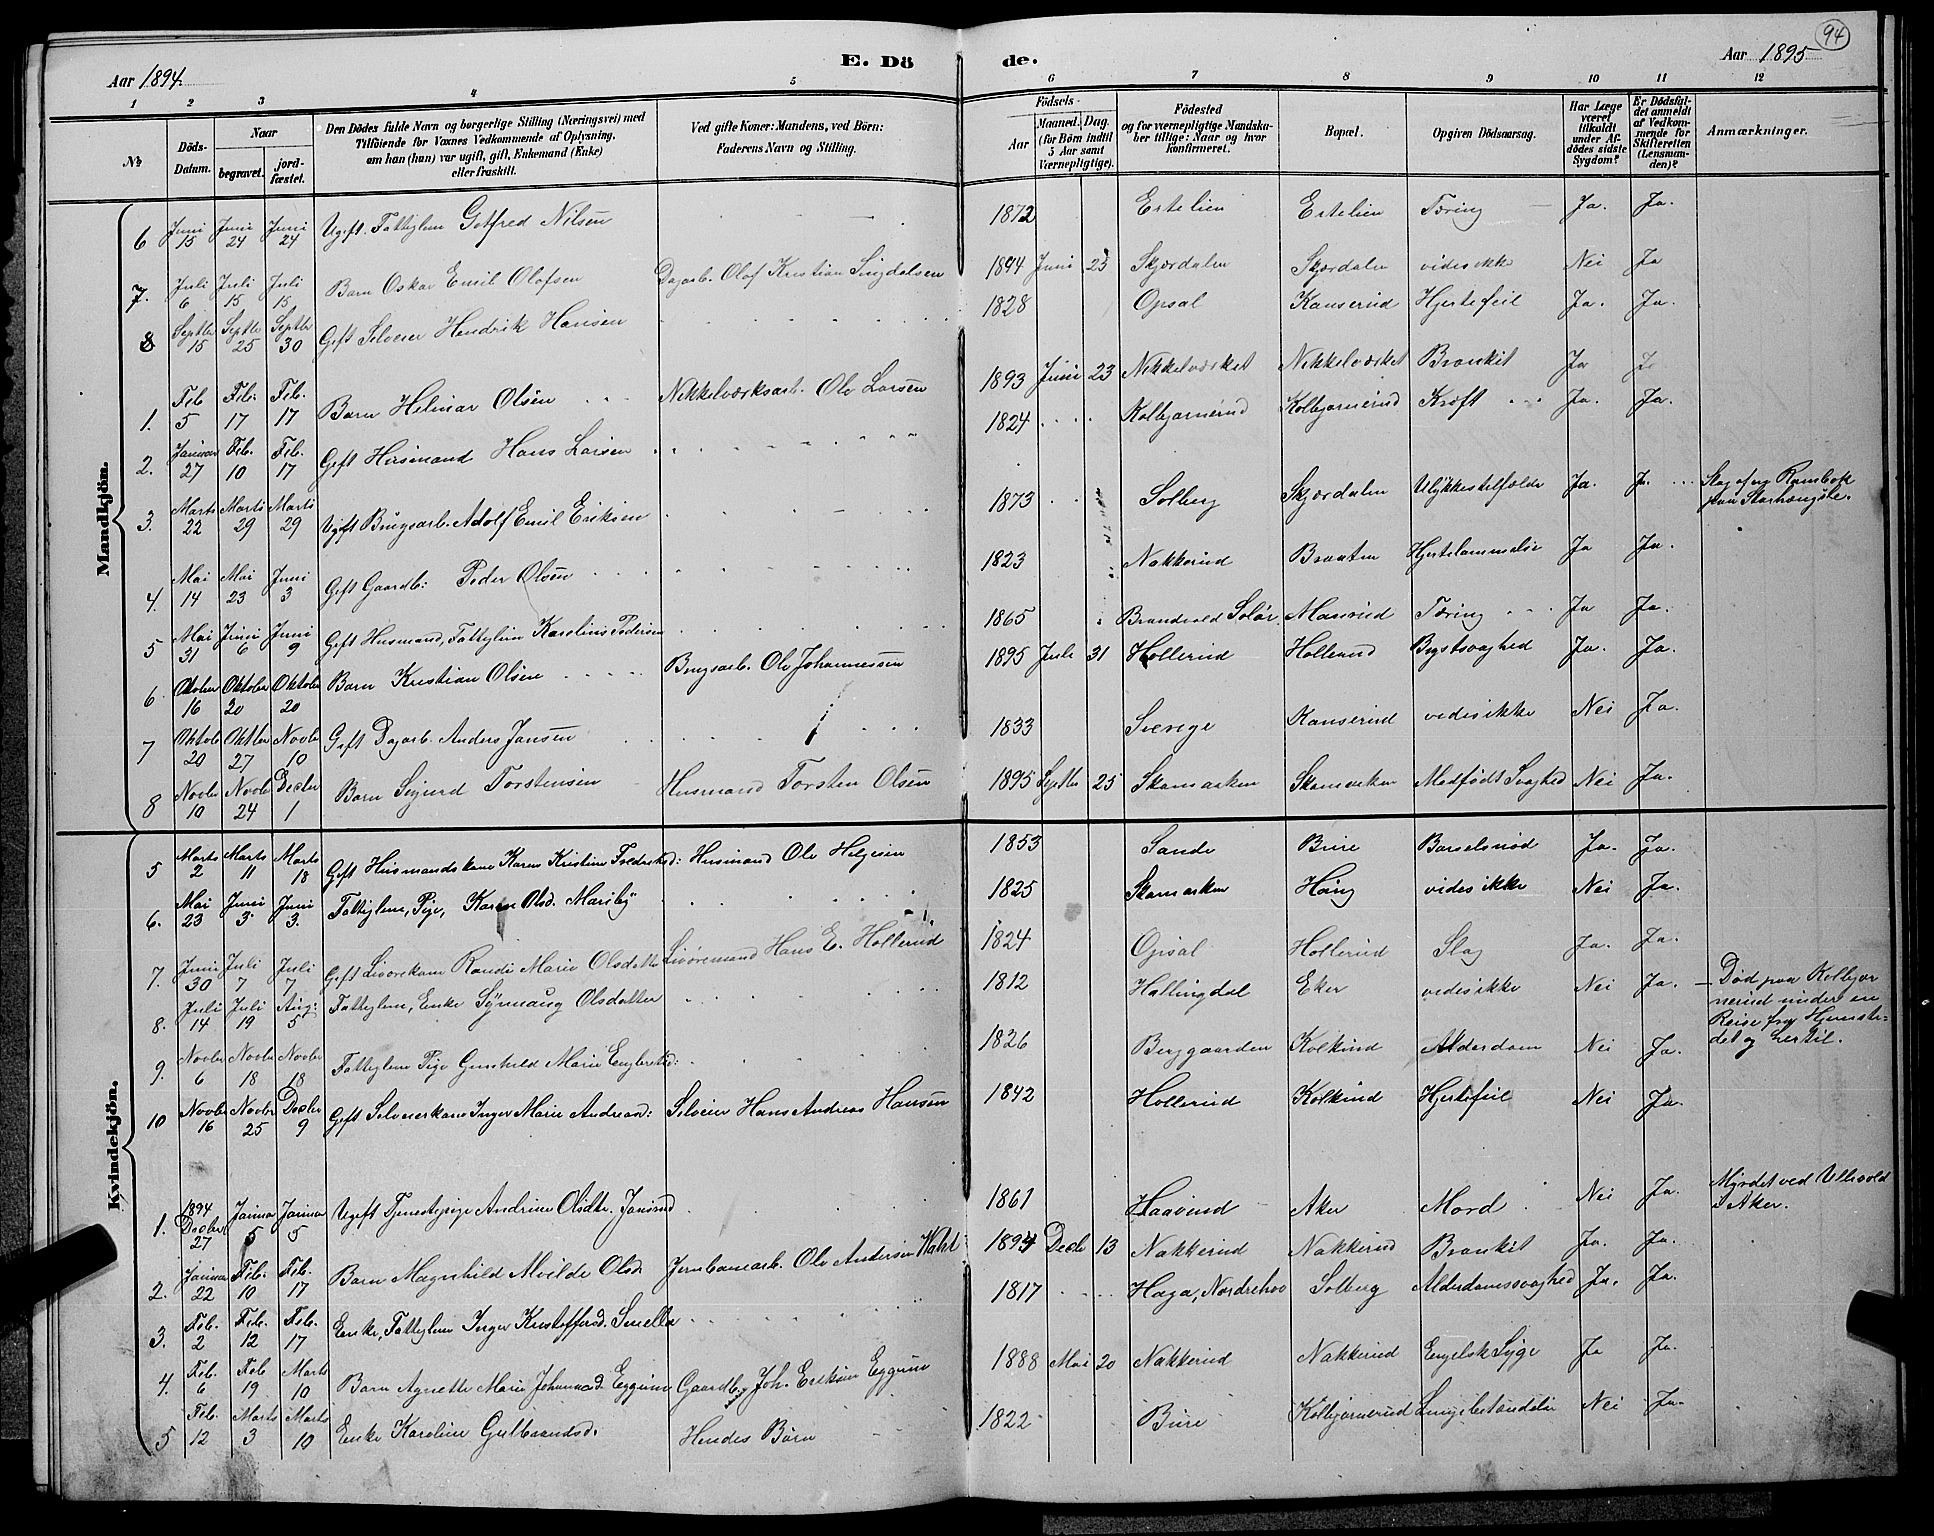 94
Aar 1894.
E. Dö
de.
Aar 1895
1 2 3 4 5 6 7 8 9 10 11 12
No
Döds-Datum.
Naar
begravet.
jordfæstet.
Den Dödes fulde Navn og borgerlige Stilling (Næringsvei) med
Tilföiende for Voxnes Vedkommende af Oplysning,
om han (hun) var ugift, gift, Enkemand (Enke)
eller fraskilt.
Ved gifte Koner: Mandens, ved Börn:
Faderens Navn og Stilling.
Födsels-
Aar
Maaned. Dag
(for Börn indtil
5 Aar samt
Værnepligtige).
Födested
og for værnepligtige Mandskaber tillige: Naar og hvor
konfirmeret.
Bopæl.
Opgiven Dödsaarsag.
Har Læge
været
tilkaldt
under Afdödes sidste
Sygdom?
Er Dödsfaldet anmeldt
af Vedkommende for
Skifteretten
(Lensmanden)?
Anmærkninger.
Mandkjön.
6 Juni 15 Juni 24 Juni 24 Ugift. Fattiglem Gotfred Nilsen 1872 Ertelien Ertelien Tæring Ja. Ja.
7. Juli 6 Juli 15 Juli 15 Barn Oskar Emil Olofsen Dagarb. Olof Kristian Singdalsen 1894 Juni 23 Skjærdalen Skjærdalen vides ikke Nei Ja
8 Septbr 15 Septbr 25 Septbr 30 Gift Selveier Hendrik Hansen 1828 Opsal Kanserud Hjertefeil Ja. Ja.
1. Feb 5 Feb. 17 Feb. 17 Barn Helmar Olsen Nikkelværksarb. Ole Larsen 1893 Juni 23 Nikkelværket Nikkelværket Bronkit Ja
2. Januar 27 Feb. 10 Feb. 17 Gift Husmand Hans Larsen 1824 Kolbjørnerud Kolbjørnerud Kræft Ja. Ja.
3. Marts 22 Marts 29 Marts 29 Ugift Brugsarb. Adolf Emil Eriksen 1873 Solberg Skjærdalen Ulykkestilfælde Ja. Ja. Slag af en Rambok
4. Mai 14 Mai 23 Juni 3 Gift Gaardb: Peder Olsen 1823 Nakkerud Braaten Hjertelammelse Ja Ja.
5 Mai 31 Juni 6 Juni 9 Gift Husmand, Fattiglem Karelius Pedersen 1865 Brandvold Solør Maurud Tæring Ja Ja.
6. Oktober 16 Oktober 20 Oktober 20 Barn Kristian Olsen Brugsarb. Ole Johannessen 1895 Juli 31 Hollerud Hollerud Brystsvaghed Ja. Ja.
7 Oktob 20 Oktbr 27 Novbr 10 Gift Dagarb. Anders Jansen 1833 Sverige Kanserud vides ikke Nei Ja.
8 Novbr 10 Novbr 24 Decbr 1 Barn Sigurd Torstensen Husmand Torsten Olsen 1895 Septbr 25 Skamarken Skamarken Medfødt Svaghed Nei Ja.
Kvindekjön.
5 Marts 2 Marts 11 Marts 18 Gift Husmandskone Karen Kristine Fredriksd: Husmand Ole Helgesen 1853 Sande Bure Barselsnød Ja. Ja.
6. Mai 23 Juni 3 Juni 3. Fattiglem, Pige, Karen Olsd. Mariby 1825 Skamarken Haug vides ikke Nei Ja.
7. Juni 30 Juli 7 Juli 7 Gift Livørekone Randi Marie Olsdatter Livøremand Hans E. Hollerud 1824 Opsal Hollerud Slag Ja. Ja.
8. Juli 14 Juli 19 Aug: 5 Fattiglem, Enke Synnaug Olsdatter 1812 Hallingdal Eker vides ikke Nei Ja. Død paa Kolbjør
nerud under en
Reise fra Hjemste-
det og hertil.
9. Novbr 6 Novbr 18 Novbr 18 Fattiglem Pige Gunhild Marie Engbretsd: 1826 Berggaarden Kolkind Alderdom Nei Ja.
10 Novbr 16 Novbr 25 Decbr 9 Gift Selveierkone Inger Marie Andreasd: Selveier Hans Andreas Hansen 1842 Hollerud Kolkind Hjertefeil Nei Ja.
1. 1894 Decber 27 Januar 5 Januar 5 Ugift Tjenestepige Andrine Olsdtr. 1861 Haavind Aker Mord Nei Ja. Myrdet ved Ullevold
I Aker.
2. Januar 22 Feb. 10 Feb. 17 Barn Magnhild Mvilde Olsd. Jernbanearb. Ole Andersen 1894 Decbr 13 Nakkerud Nakkerud Bronkit Ja. Ja.
3. Feb. 2 Feb. 12 Feb. 17 Enke, Fattiglem Inger Kristoffersd. Smella 1817 Haga, Nordrehov Solberg Alderdomssvaghed Ja. Ja.
4. Feb. 6 Feb 19 Marts 10 Barn Agnette Marie Johannesd. Eggum Gaardbr. Joh. Eriksen Eggum 1888 Mai 20 Nakkerud Nakkerud Engelsk Syge Ja Ja.
5 Feb. 12 Marts 3 Marts 10 Enke Karoline Gulbrandsd. Hendes Børn 1822 Bure Kolbjørnerud Lungebetændelse Nei Ja.